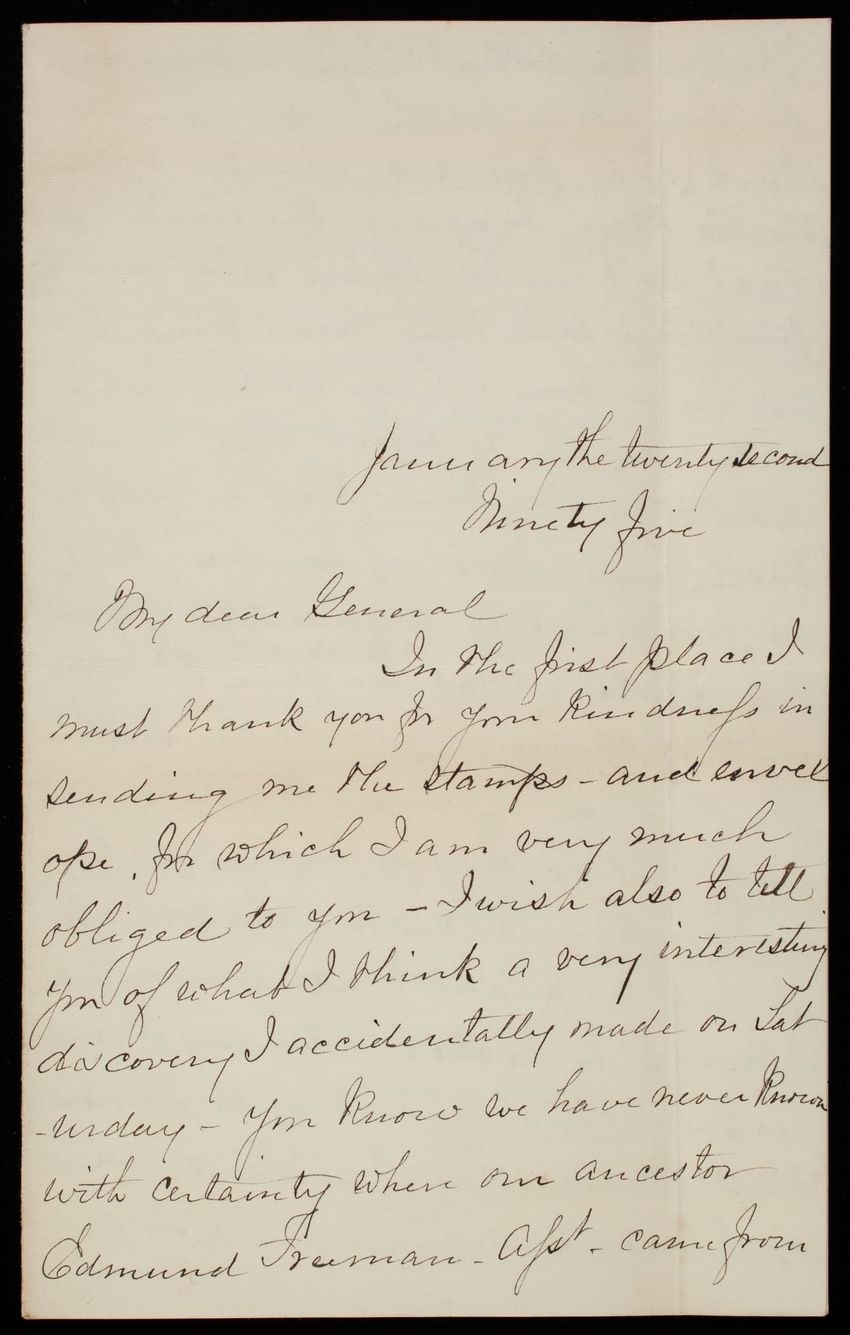 January the twenty second
Ninety five
My dear General
In the first place I
must thank you for your kindness in
sending me the stamps - and envel
ope, for which I am very much
obliged to you - I wish also to tell
you of what I think a very interesting
discovery I accidentally made on Sat
-urday - You know we have never known
with certainty where our ancestor
Edmund Freeman - Asst - came from